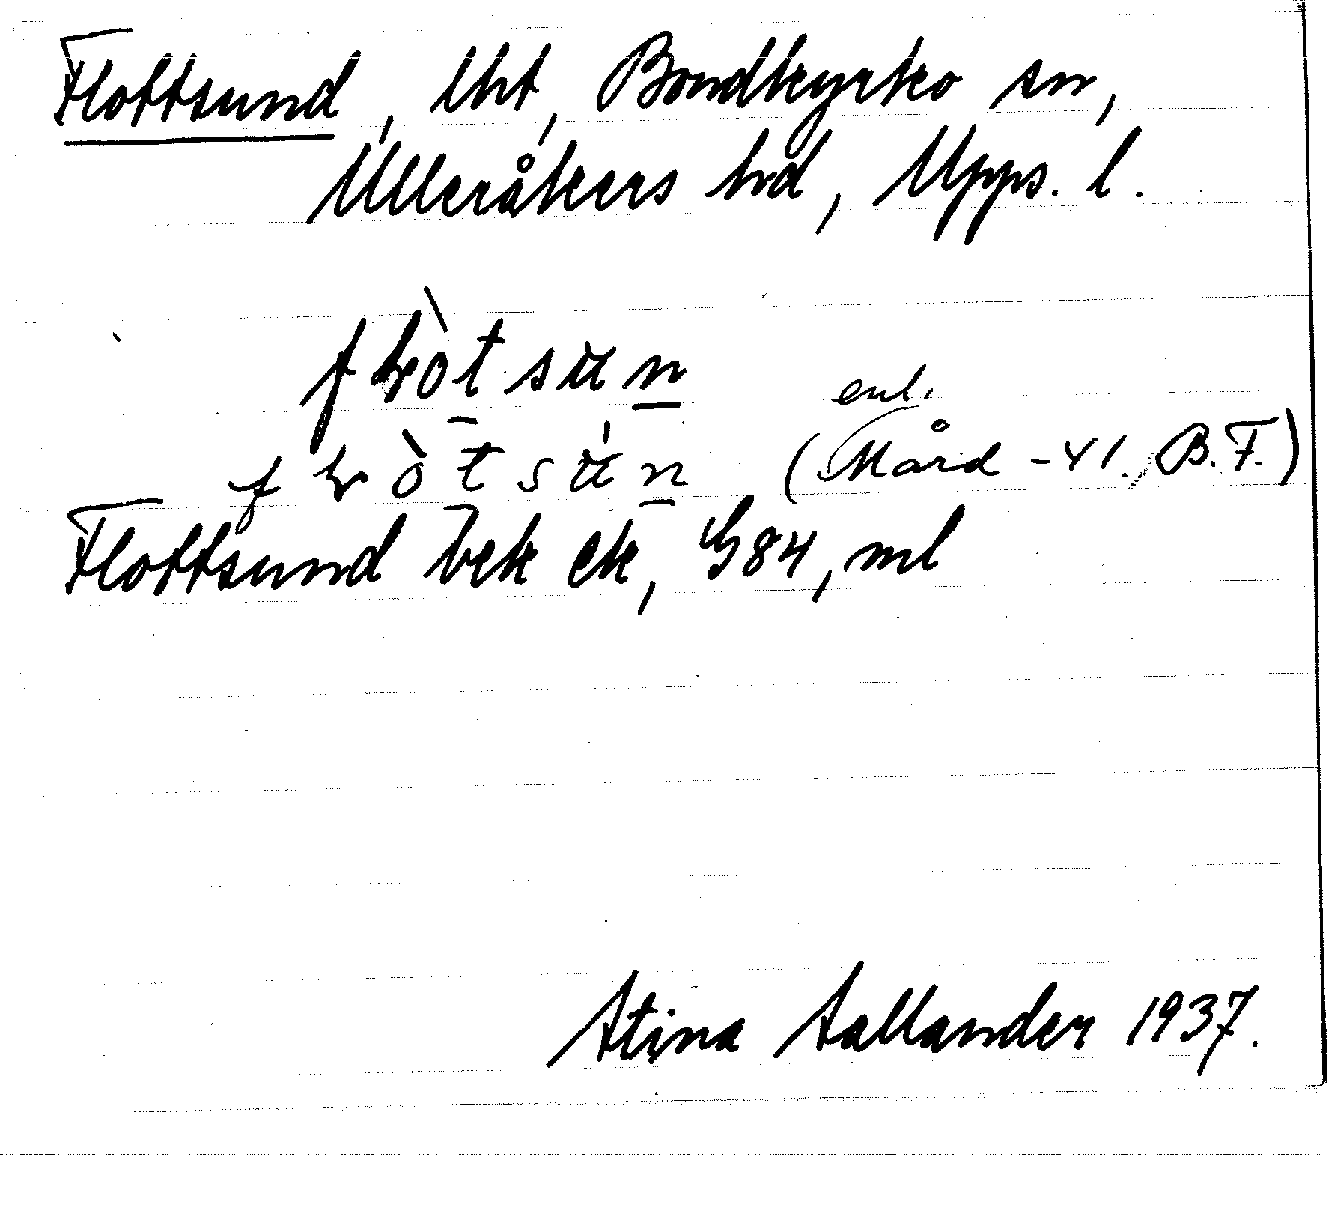 Flottsund, lht, Bondkyrko sn,
Ulleråkers hd, Upps. l.
enl.
(Mård -41. B.F.)
Flottsund bek ek, G84, ml
Stina Sallander 1937.